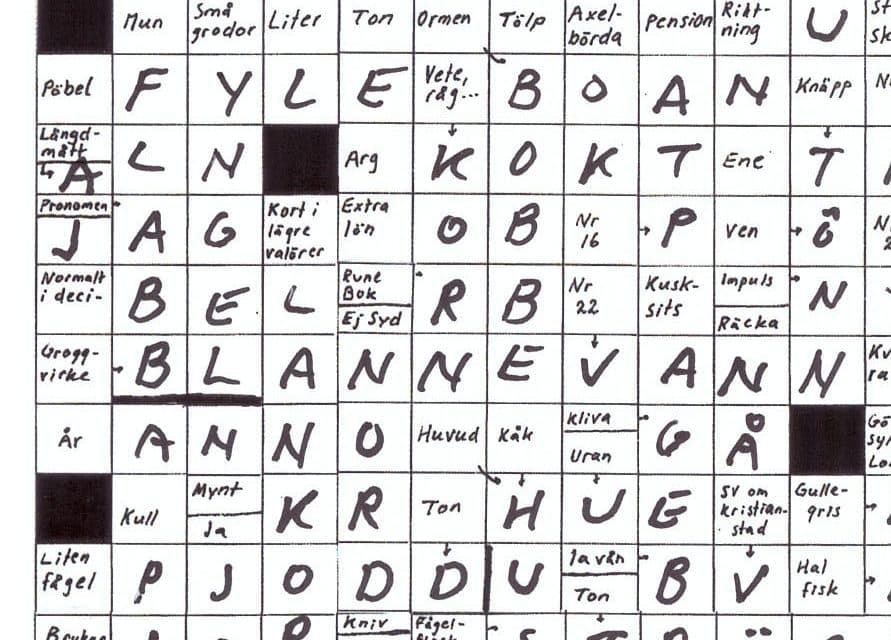 Mun Små grodor Liter Ton Ormen Tölp Axel-börda Pension Rikt-ning U
Pöbel F Y L E Vete, råg... B O A N Knäpp
Längd-mått A L N Arg K O K T Ene T
Pronomen J A G Kort i lägre valörer Extra lön O B Nr 16 P Ven Ö
Normalt i deci- B E L Rune Bok Ej Syd R B Nr 22 Kusk-sits Impuls Räcka N
Grogg-virke B L A N N N E V A N N
År A N N O Huvud Kåk Kliva Uran G Å
Kull Mynt Ja K R Ton H U E SV om Kristian-stad Gulle-gris
Liten fågel P J O D D U Ja vån Ton B V Hal fisk
Kniv Fågel-